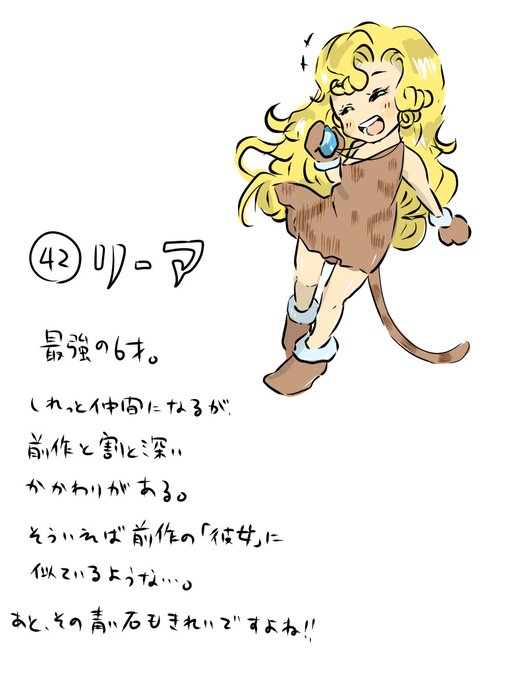 ㊷リーア
最強の6才。
しれっと仲間になるが、
前作と割と深い
かかわりがある。
そういえば前作の「彼女」に
似ているような…。
あと、その青い石もきれいですよね!!